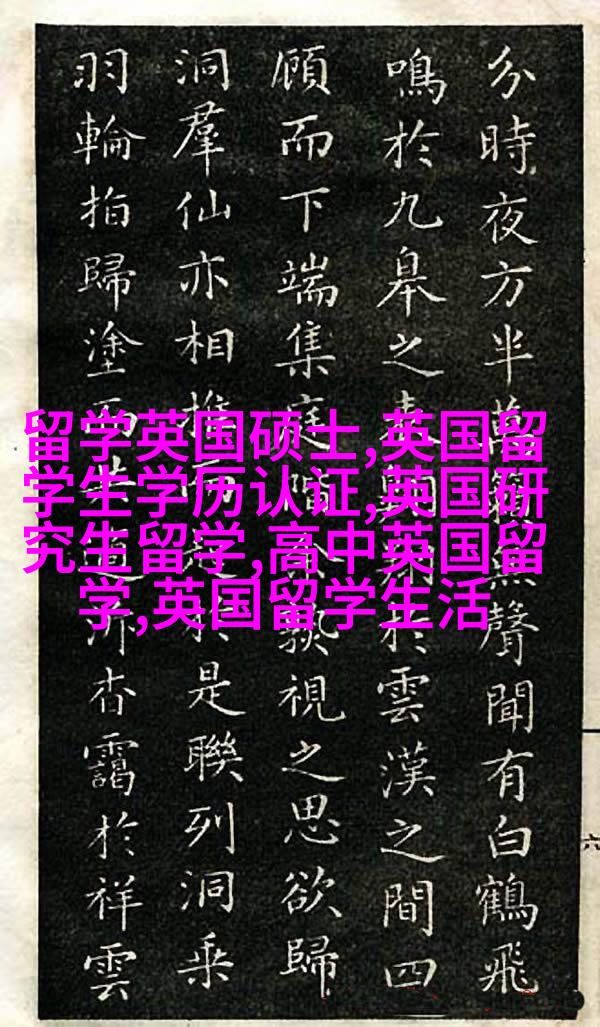 分時夜方半萬籟無聲聞有白鶴飛
鳴於九皋之翱翔於雲漢之間四
顧而下端集庭階視之思欲歸
洞羣仙亦相而於是聯列洞乘
羽輪指歸塗所杳靄於祥雲
六
留学英国硕士,英国留
学生学历认证,英国研
究生留学,高中英国留
学,英国留学生活